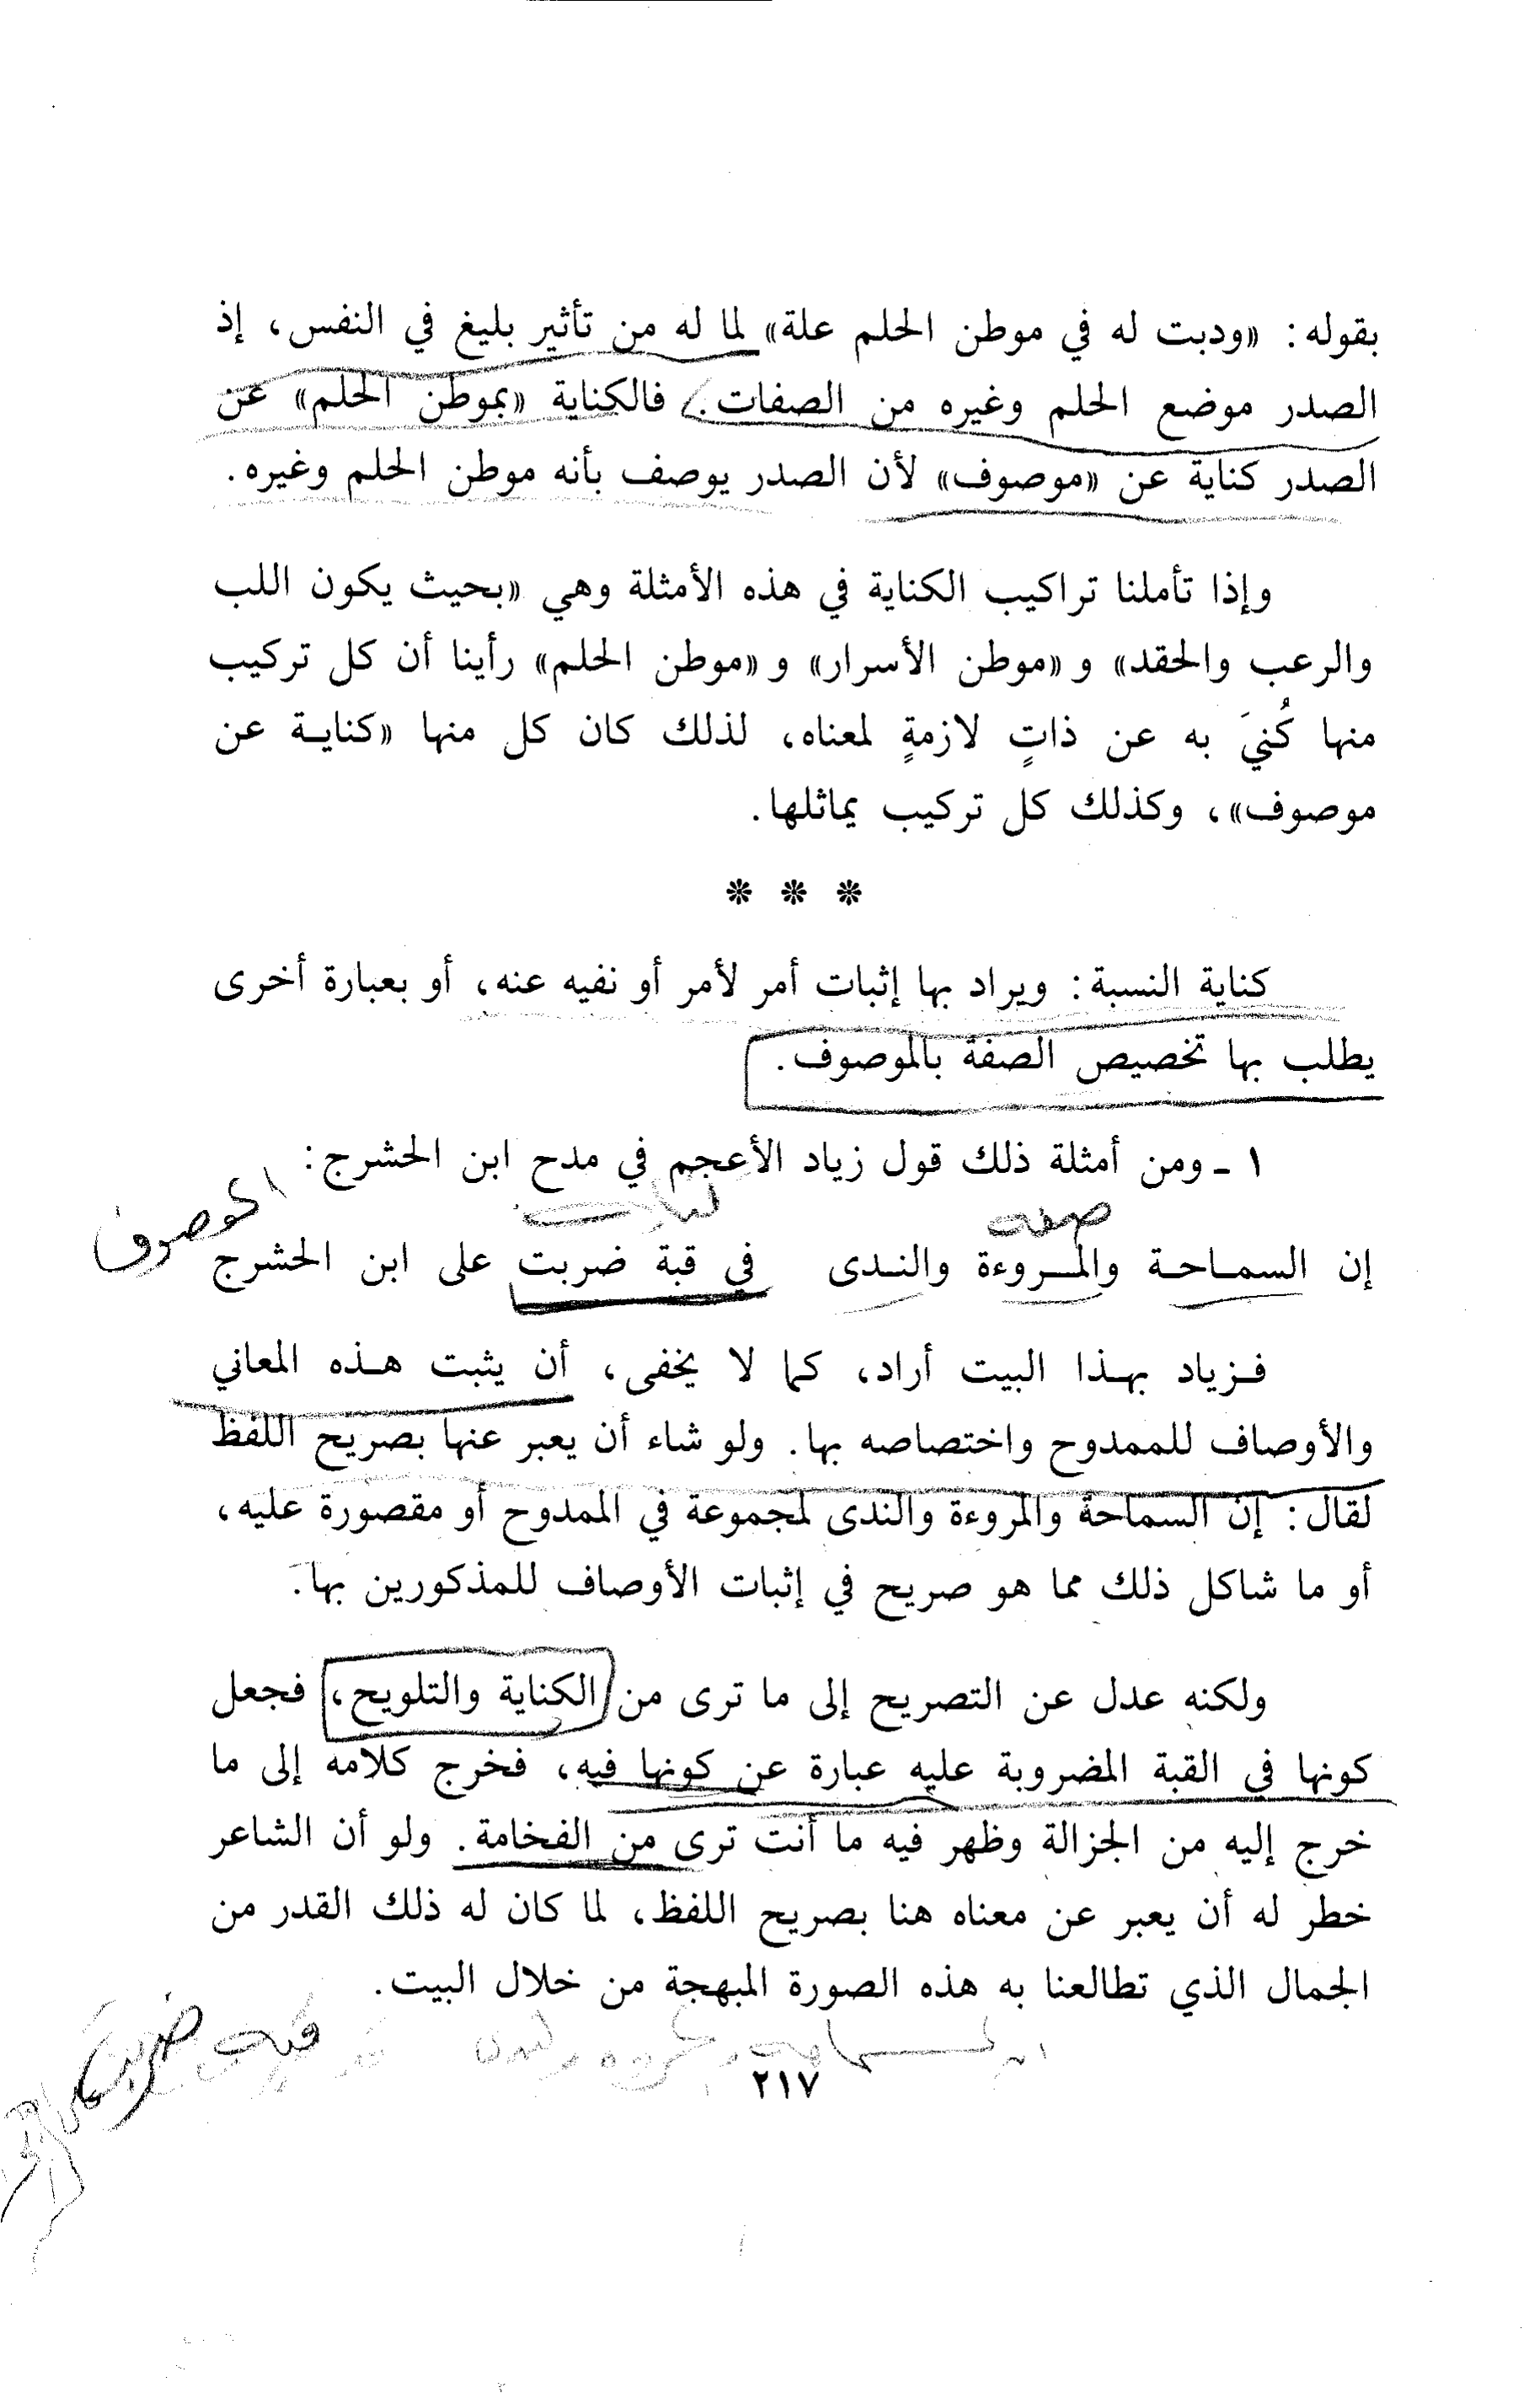 بقوله: «ودبت له في موطن الحلم علة» لما له من تأثير بليغ في النفس، إذ
الصدر موضع الحلم وغيره من الصفات. فالكناية «بموطن الحلم» عن
الصدر كناية عن «موصوف» لأن الصدر يوصف بأنه موطن الحلم وغيره.
وإذا تأملنا تراكيب الكناية في هذه الأمثلة وهي «بحيث يكون اللب
والرعب والحقد» و «موطن الأسرار» و «موطن الحلم» رأينا أن كل تركيب
منها كُنيَ به عن ذاتٍ لازمةٍ لمعناه، لذلك كان كل منها «كناية عن
موصوف»، وكذلك كل تركيب يماثلها.
* * *
كناية النسبة: ويراد بها إثبات أمر لأمر أو نفيه عنه، أو بعبارة أخرى
يطلب بها تخصيص الصفة بالموصوف.
١ - ومن أمثلة ذلك قول زياد الأعجم في مدح ابن الحشرج:
صفت
الموصوف
إن السماحة والمروءة والندى في قبة ضربت على ابن الحشرج
فزياد بهذا البيت أراد، كما لا يخفى، أن يثبت هذه المعاني
والأوصاف للممدوح واختصاصه بها. ولو شاء أن يعبر عنها بصريح اللفظ
لقال: إن السماحة والمروءة والندى لمجموعة في الممدوح أو مقصورة عليه،
أو ما شاكل ذلك مما هو صريح في إثبات الأوصاف للمذكورين بها.
ولكنه عدل عن التصريح إلى ما ترى من الكناية والتلويح، فجعل
كونها في القبة المضروبة عليه عبارة عن كونها فيه، فخرج كلامه إلى ما
خرج إليه من الجزالة وظهر فيه ما أنت ترى من الفخامة. ولو أن الشاعر
خطر له أن يعبر عن معناه هنا بصريح اللفظ، لما كان له ذلك القدر من
الجمال الذي تطالعنا به هذه الصورة المبهجة من خلال البيت.
قبت ضربت
٢١٧